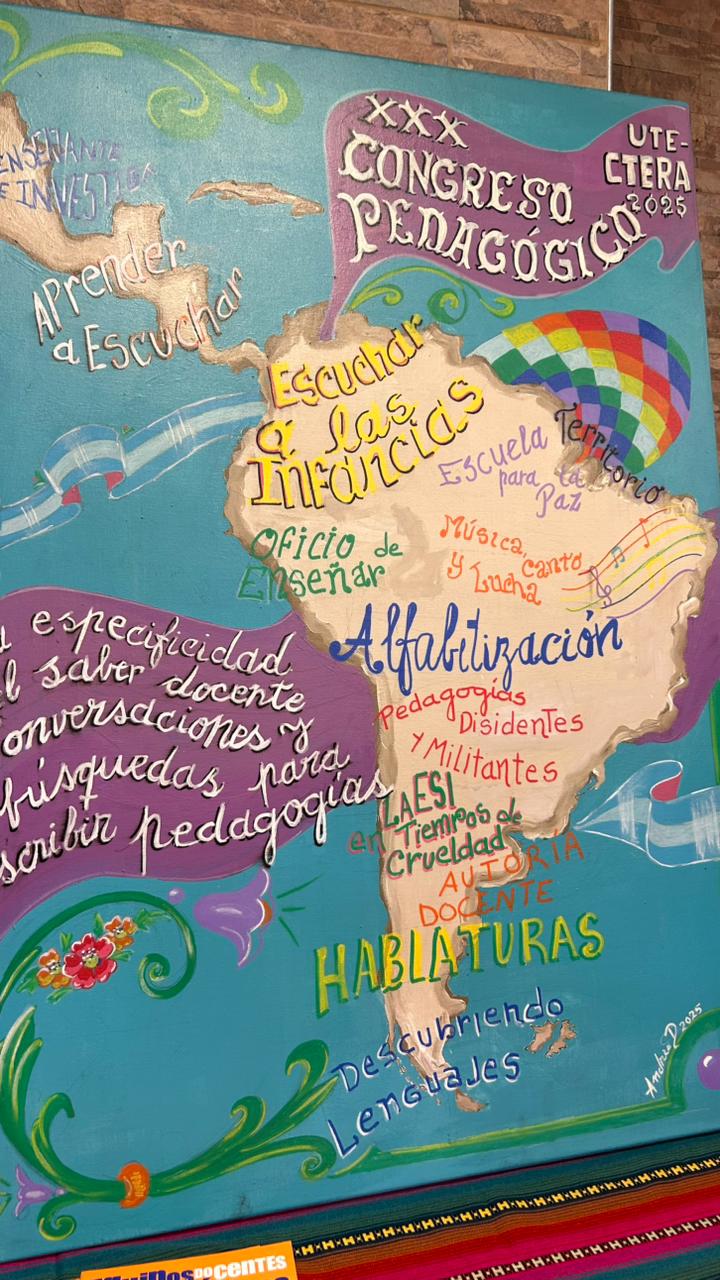 XXX
CONGRESO
PEDAGÓGICO
UTE-
CTERA
2025
ENSEÑANTE
E INVESTIGA
APrender
a Escuchar
Escuchar
a las
Infancias
Territorio
Escuela
para la
Paz
Oficio de
Enseñar
Música, canto
y Lucha
Alfabitización
a especificidad
l saber docente
onversaciones y
búsquedas para
scribir pedagogías
Pedagogías
Disidentes
y Militantes
LA ESI
en Tiempos de
Crueldad
AUTORÍA
DOCENTE
HABLATURAS
Descubriendo
Lenguajes
2025
DOCENTES